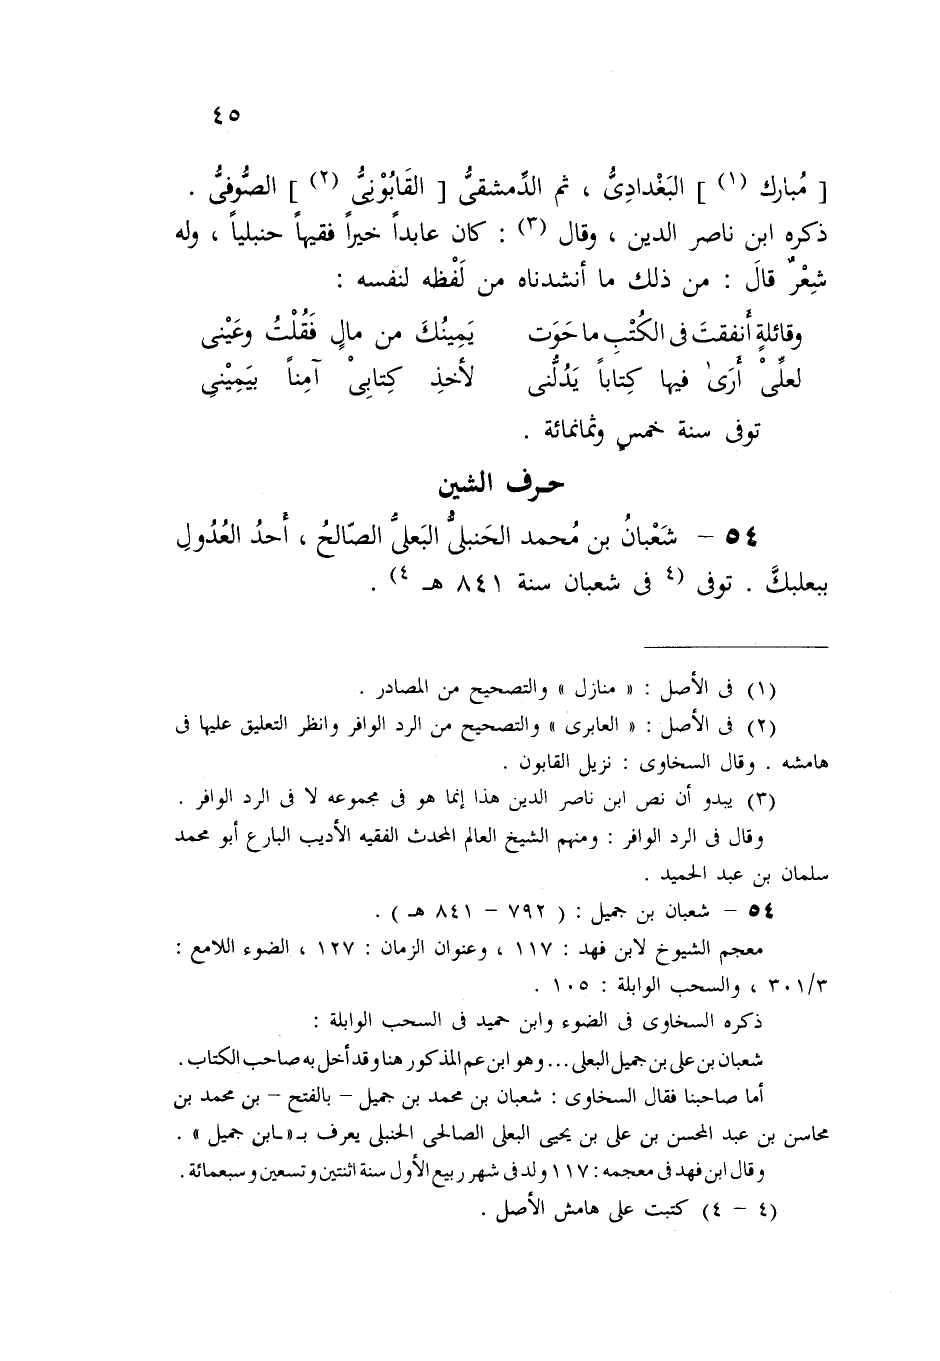 ٤٥
[ مُبارك (١) ] البَغْدادِىُّ ، ثم الدِّمشقىُّ [ القَابُوْنِىُّ (٢) ] الصُّوفىُّ .
ذكره ابن ناصر الدين ، وقال (٣) : كان عابداً خيراً فقيهاً حنبلياً ، وله
شِعْرٌ قالَ : من ذلك ما أنشدناه من لَفْظه لنفسه :
وقائلةٍ أَنفقتَ فى الكُتْبِ ما حَوَت يَمِينُكَ من مالٍ فَقُلْتُ وعَيْنى
لعلِّىْ أَرَىٰ فيها كِتاباً يَدُلُّنى لأخذِ كِتابِىْ آمِناً بيَمِيْنيِ
توفى سنة خمسٍ وثمانمائة .
حرف الشين
٥٤ - شَعْبانُ بن مُحمد الحَنبلىُّ البَعلىُّ الصّالحُ ، أَحدُ العُدُولِ
ببعلبكَّ . توفى (٤ فى شعبان سنة ٨٤١ هـ ٤) .
(١) فى الأصل : « منازل » والتصحيح من المصادر .
(٢) فى الأصل : « العابرى » والتصحيح من الرد الوافر وانظر التعليق عليها فى
هامشه . وقال السخاوى : نزيل القابون .
(٣) يبدو أن نص ابن ناصر الدين هذا إنما هو فى مجموعه لا فى الرد الوافر .
وقال فى الرد الوافر : ومنهم الشيخ العالم المحدث الفقيه الأديب البارع أبو محمد
سلمان بن عبد الحميد .
٥٤ - شعبان بن جميل : ( ٧٩٢ - ٨٤١ هـ ) .
معجم الشيوخ لابن فهد : ١١٧ ، وعنوان الزمان : ١٢٧ ، الضوء اللامع :
٣٠١/٣ ، والسحب الوابلة : ١٠٥ .
ذكره السخاوى فى الضوء وابن حميد فى السحب الوابلة :
شعبان بن على بن جميل البعلى ... وهو ابن عم المذكور هنا وقد أخل به صاحب الكتاب .
أما صاحبنا فقال السخاوى : شعبان بن محمد بن جميل - بالفتح - بن محمد بن
محاسن بن عبد المحسن بن على بن يحيى البعلى الصالحى الحنبلى يعرف بـ«ـابن جميل » .
وقال ابن فهد فى معجمه : ١١٧ ولد فى شهر ربيع الأول سنة اثنتين وتسعين وسبعمائة .
(٤ - ٤) كتبت على هامش الأصل .